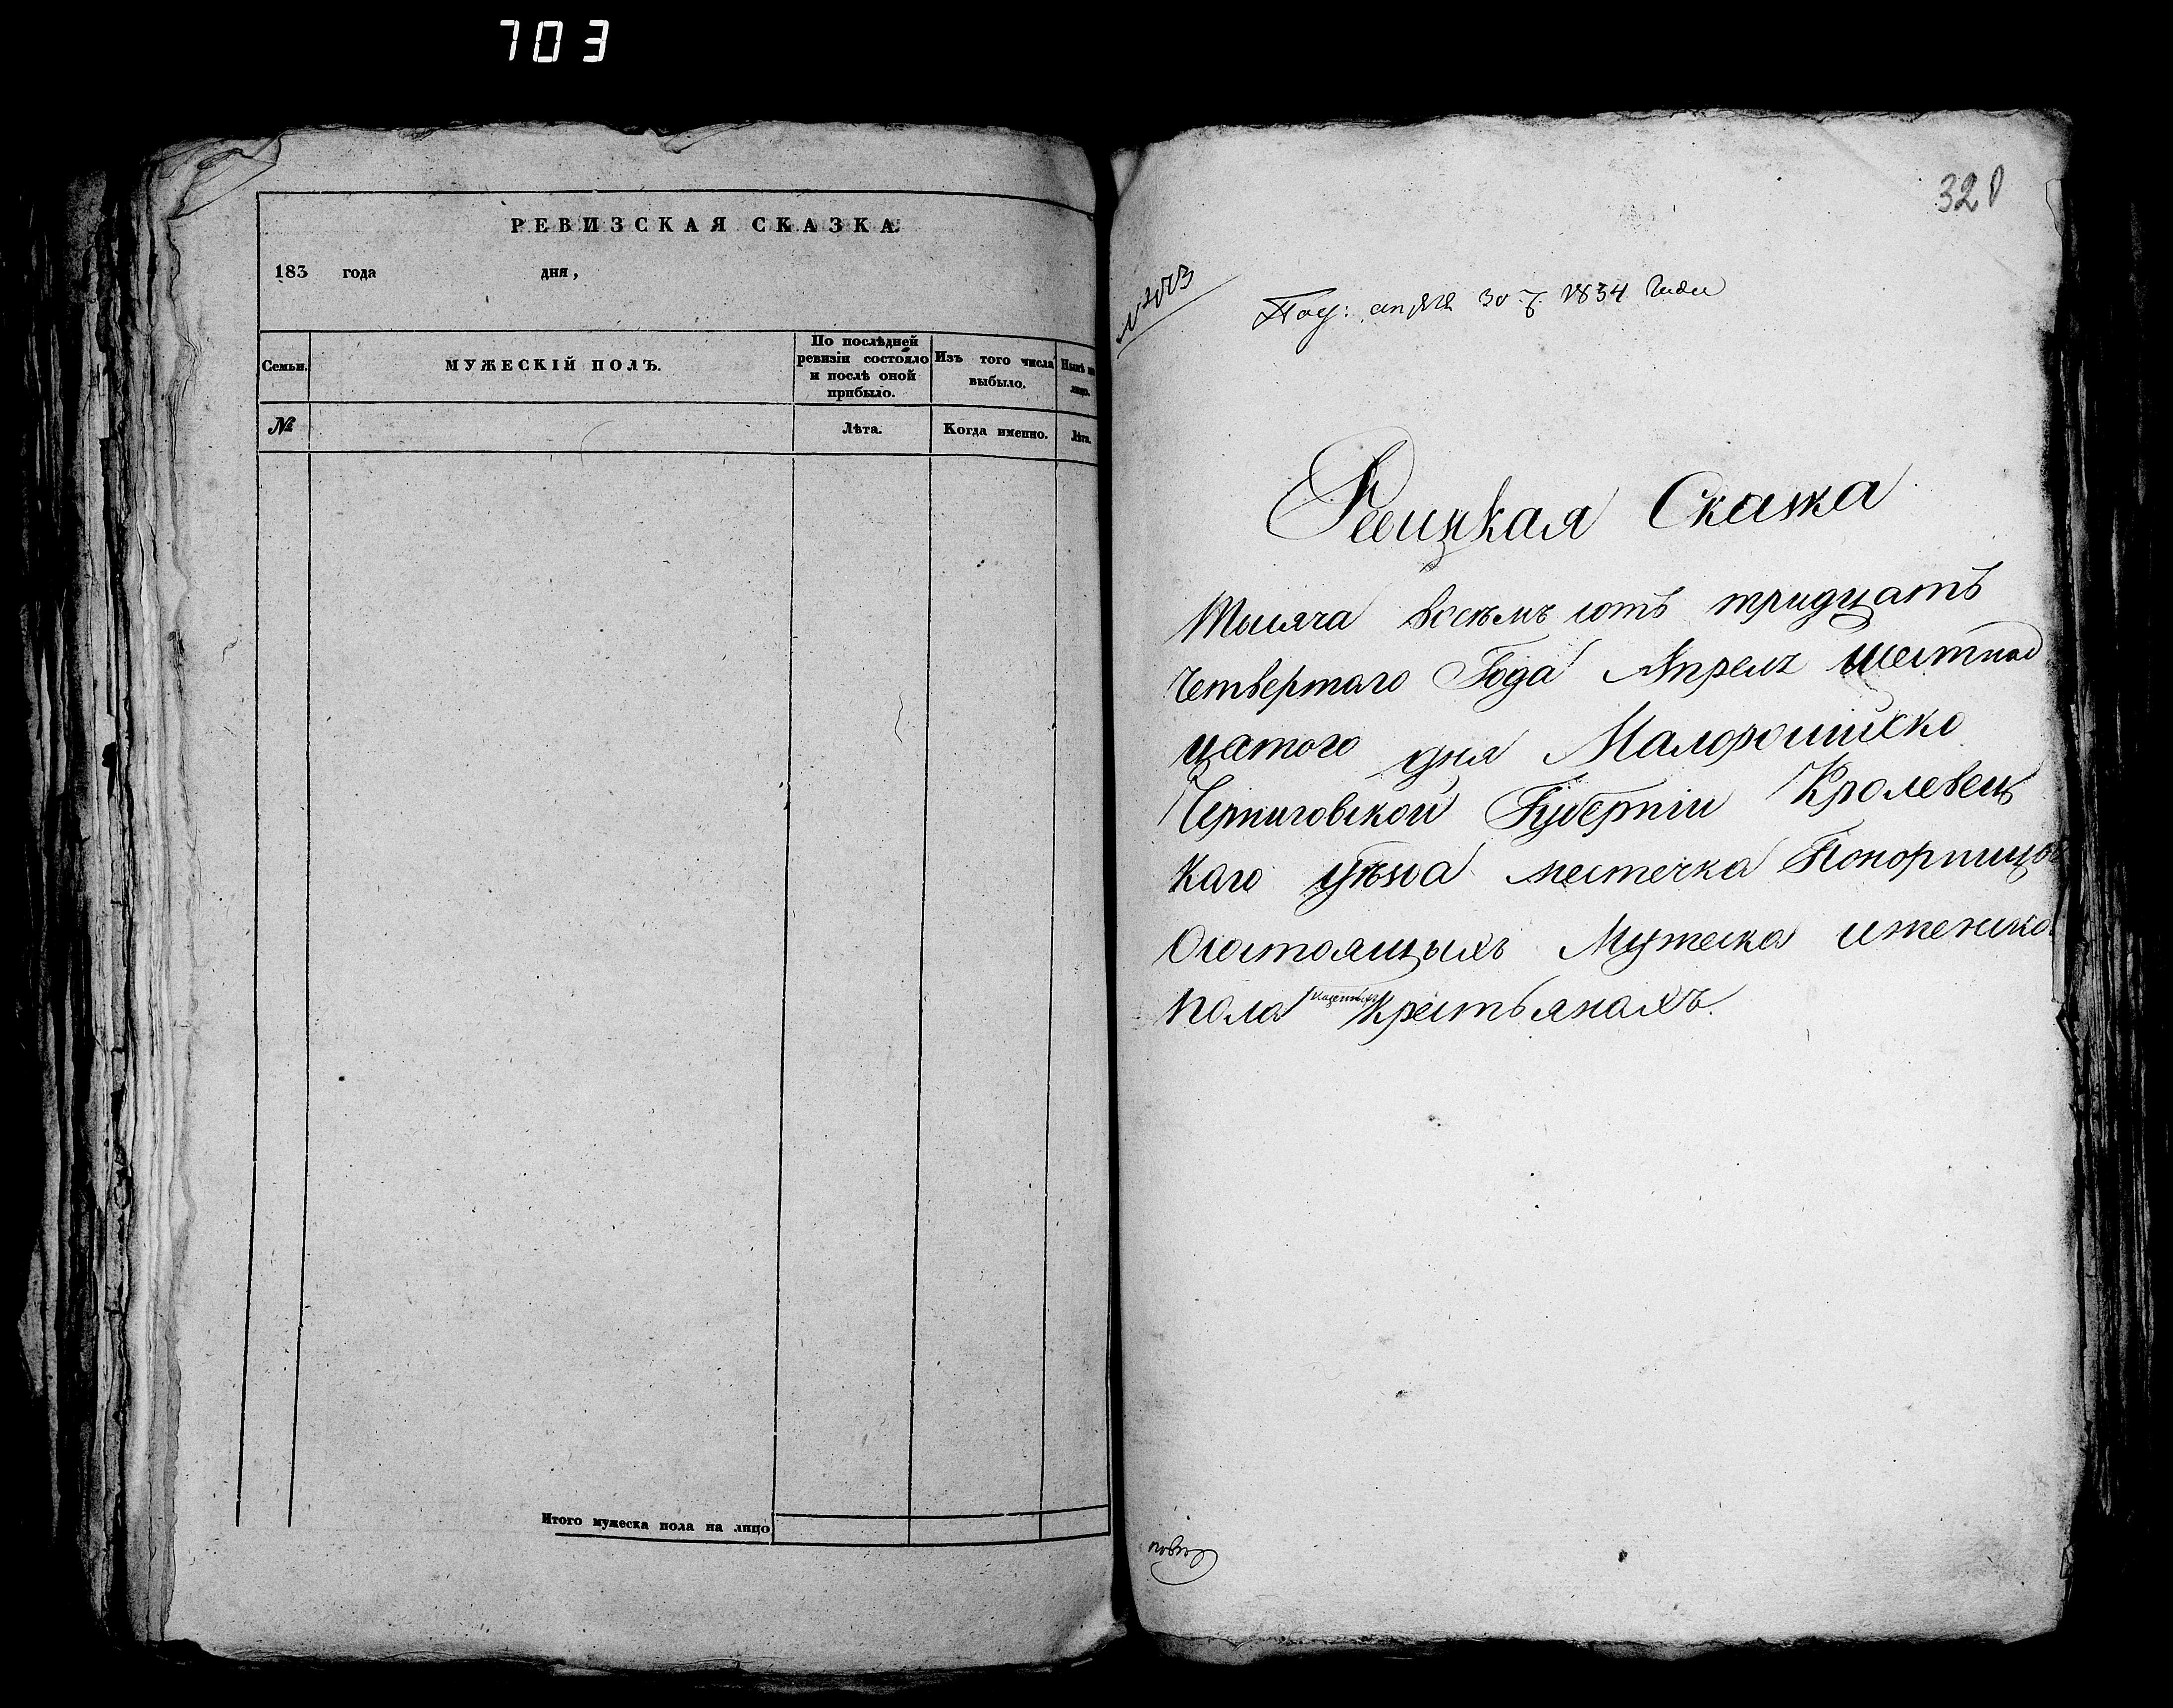 703
РЕВИЗСКАЯ СКАЗКА
183 года дня,
Семьи.
МУЖЕСКІЙ ПОЛЪ.
По послѣдней ревизіи состояло и послѣ оной прибыло.
Изъ того числа выбыло.
Нынѣ на лицо.
№
Лѣта.
Когда именно.
Лѣта.
Итого мужеска пола на лицо
320
Пол: апреля 30 д. 1834 года
Ревижкая Скаска
Тысяча восемъ сотъ тридцатъ
Четвертаго Года Апреля Шестнад
цатого дня Малоросийско
Черниговской Губерніи Кролевец
каго уѣзда местечка Понорницы
О состоящыхъ Мужеска и женска
пола казенныхъ Крестьянахъ.